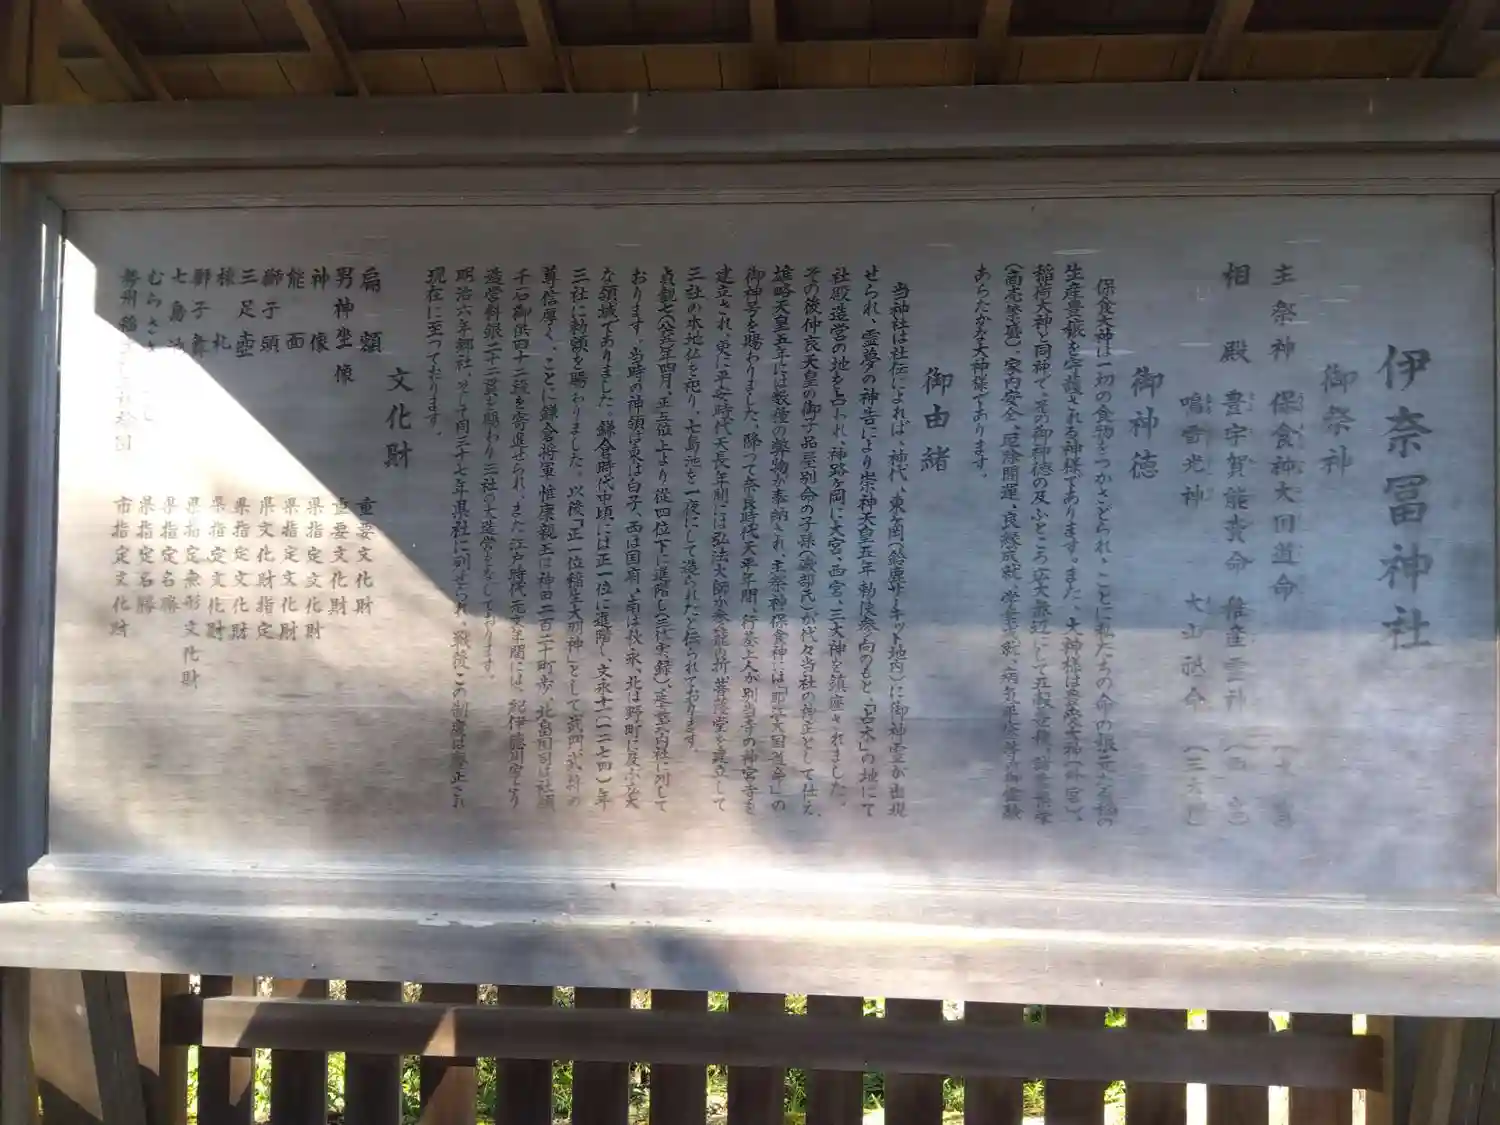 伊奈冨神社
御祭神
主祭神 保食神 大国道命 (大宮)
相殿 豊宇賀能売命 稚産霊神 (西宮)
鳴雷光神 大山祇命 (三大神)
御神徳
保食神は一切の食物をつかさどられ、ことに私たちの命の根元である稲の
生産豊穣を守護される神様であります。また、大神様は豊受大神(外宮)、
稲荷大神と同神で、その御神徳の及ぶところ広大無辺にして五穀豊穣、諸業繁栄
(商売繁盛)、家内安全、厄除開運、良縁成就、学業成就、病気平癒等の御霊験
あらたかな大神様であります。
御由緒
当神社は社伝によれば、神代、東ヶ岡(鈴鹿サーキット地内)に御神霊が出現
せられ、霊夢の神告により崇神天皇五年勅使参向のもと、「占木」の地にて
社殿造営の地を占われ、神路ヶ岡に大宮、西宮、三大神を鎮座されました。
その後仲哀天皇の御子品屋別命の子孫(磯部氏)が代々当社の神主として仕え、
雄略天皇五年には数種の弊物が奉納され、主祭神保食神には「那江大国道命」の
御神号を賜わりました。降つて奈良時代天平年間、行基上人が別当寺の神宮寺を
建立され、更に平安時代天長年間には弘法大師が参籠の折、菩薩堂を建立して
三社の本地仏を祀り、七島池を一夜にして造られたと伝られております。
貞観七(八六五)年四月、正五位上より従四位下に進階し(三代実録)、延喜式内社に列して
おります。当時の神領は東は白子、西は国府、南は秋永、北は野町に及ぶ広大
な領域でありました。鎌倉時代中頃には正一位に進階し、文永十一(一二七四)年
三社に勅額を賜わりました。以後「正一位稲生大明神」として武門、武将の
尊信厚く、ことに鎌倉将軍 惟康親王は神田二百二十町歩、北畠国司は社領
千石御供四十二膳を寄進せられ、また江戸時代元文年間には、紀伊徳川家より
造営料銀二十二貫を賜わり三社の大造営をなしております。
明治六年郷社、そして同三十七年県社に列せられ、戦後この制度は廃止され
現在に至つております。
文化財
扁額 重要文化財
男神坐像 重要文化財
神像 県指定文化財
能面 県指定文化財
獅子頭 県文化財指定
三足壺 県指定文化財
棟札 県指定文化財
獅子舞 県指定無形文化財
七島池 県指定名勝
むらさき 県指定名勝
勢州稲 市指定文化財